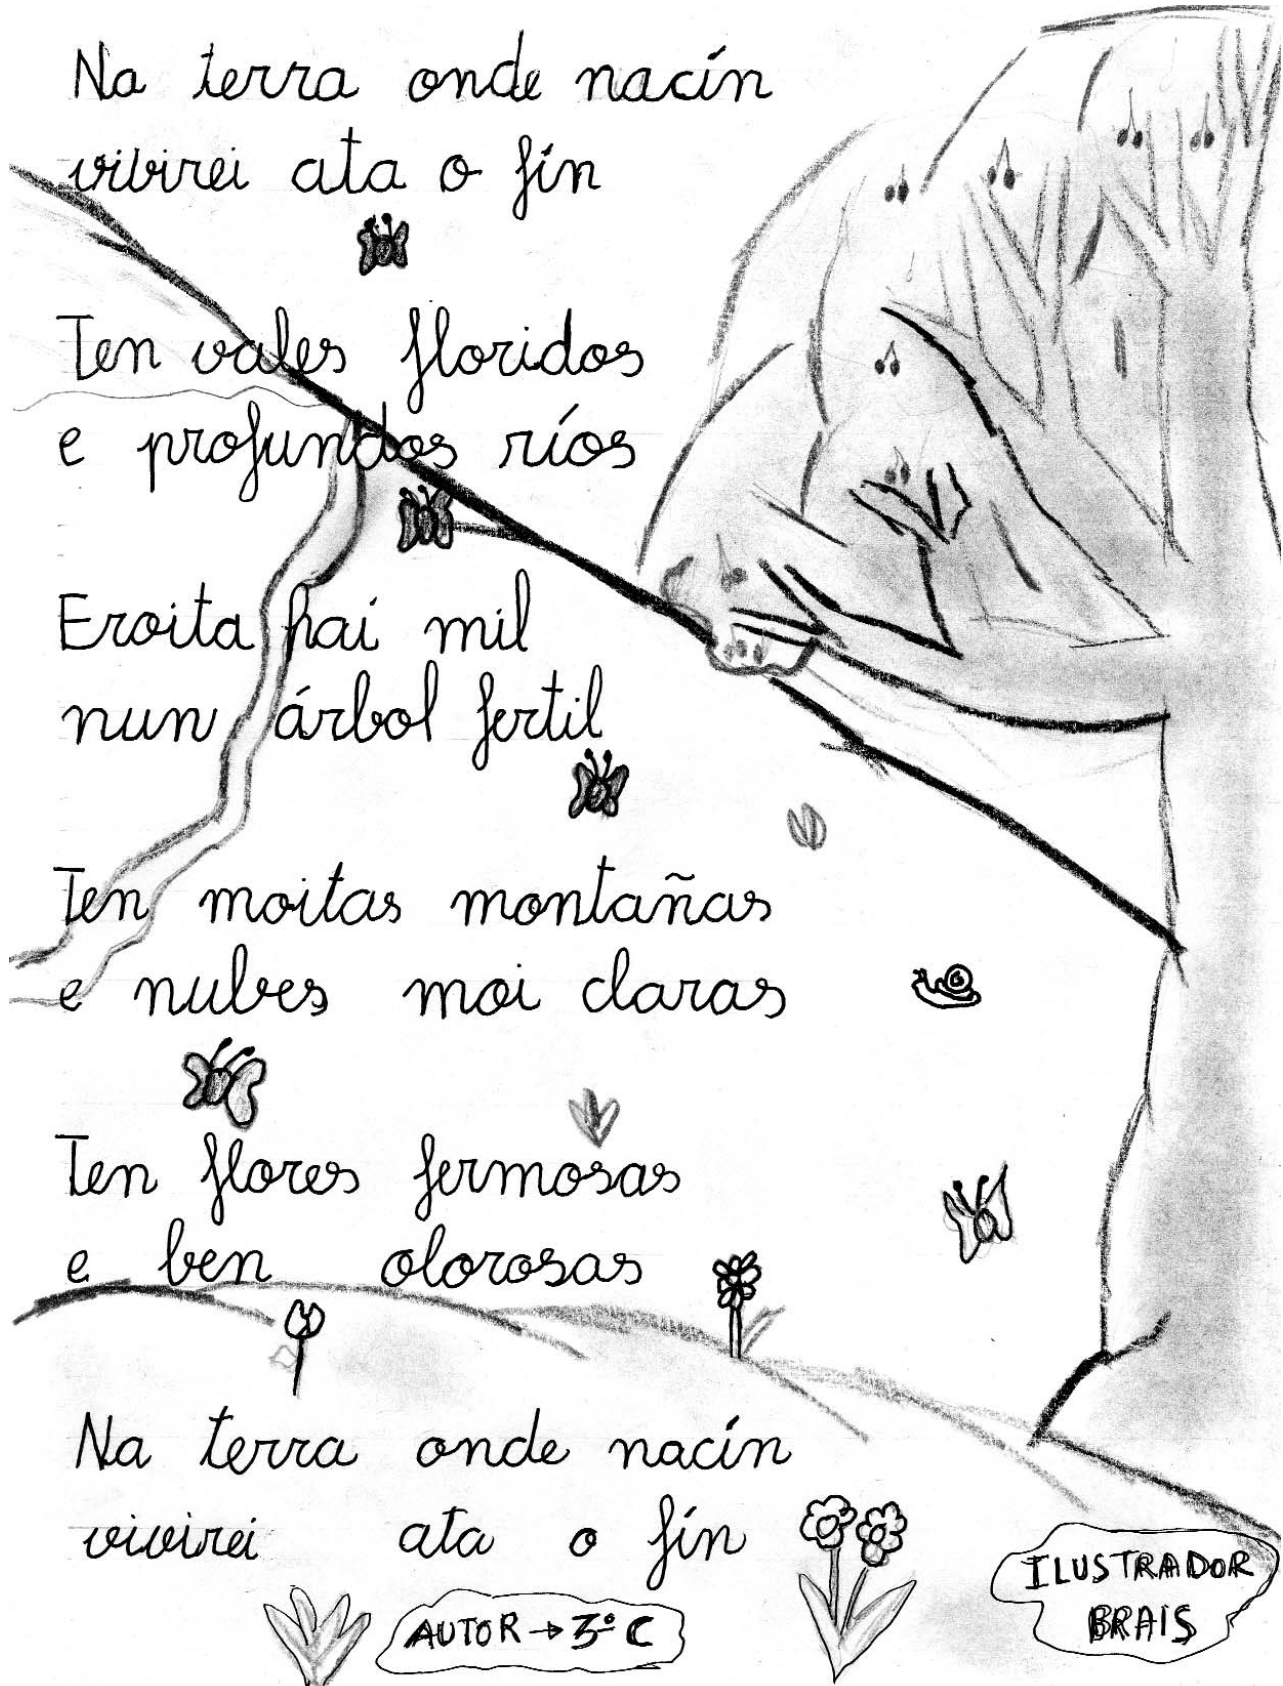 Na terra onde nacín
vivirei ata o fín
Ten vales floridos
e profundos ríos
Eroita hai mil
nun árbol fertil
Ten moitas montañas
e nubes moi claras
Ten flores fermosas
e ben olorosas
Na terra onde nacín
vivirei ata o fín
AUTOR → 3º C
ILUSTRADOR
BRAIS